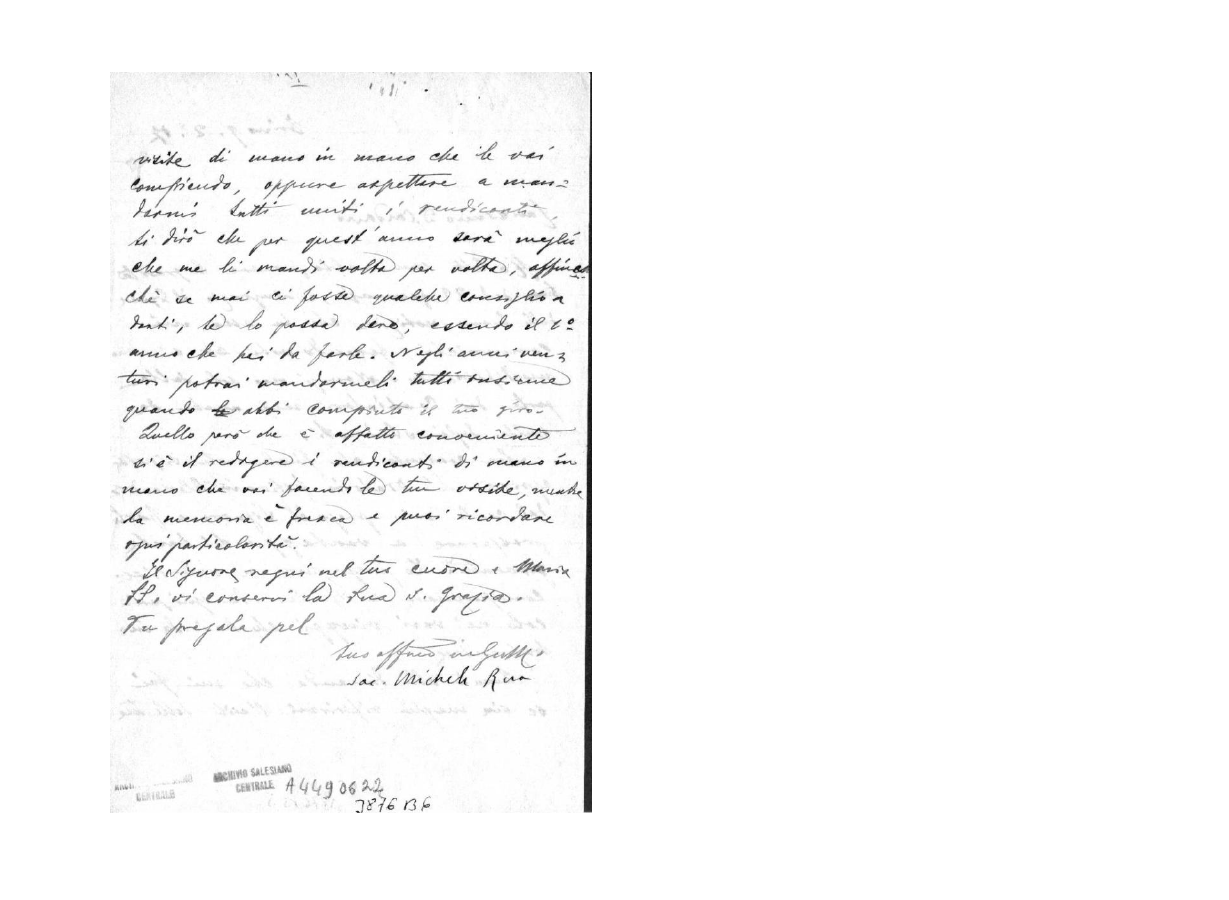 visite di mano in mano che le vai
compiendo, oppure aspettare a man=
darmi tutti uniti i rendiconti,
ti dirò che per quest'anno sarà meglio
che me li mandi volta per volta, affin
chè se mai ci fosse qualche consiglio a
darti, te lo possa dare, essendo il 1º
anno che hai da farle. Negli anni ven=
turi potrai mandarmeli tutti insieme
quando abbi compiuto il tuo giro.
Quello però che è affatto conveniente
si è il redigere i rendiconti di mano in
mano che vai facendo le tue visite, mentre
la memoria è fresca e puoi ricordare
ogni particolarità.
Il Signore regni nel tuo cuore e Maria
SS. vi conservi la sua S. Grazia.
Tu pregala pel
tuo affmo in G. e M.
Sac. Michele Rua
ARCHIVIO SALESIANO
CENTRALE
A4490622
CENTRALE
3876 B6